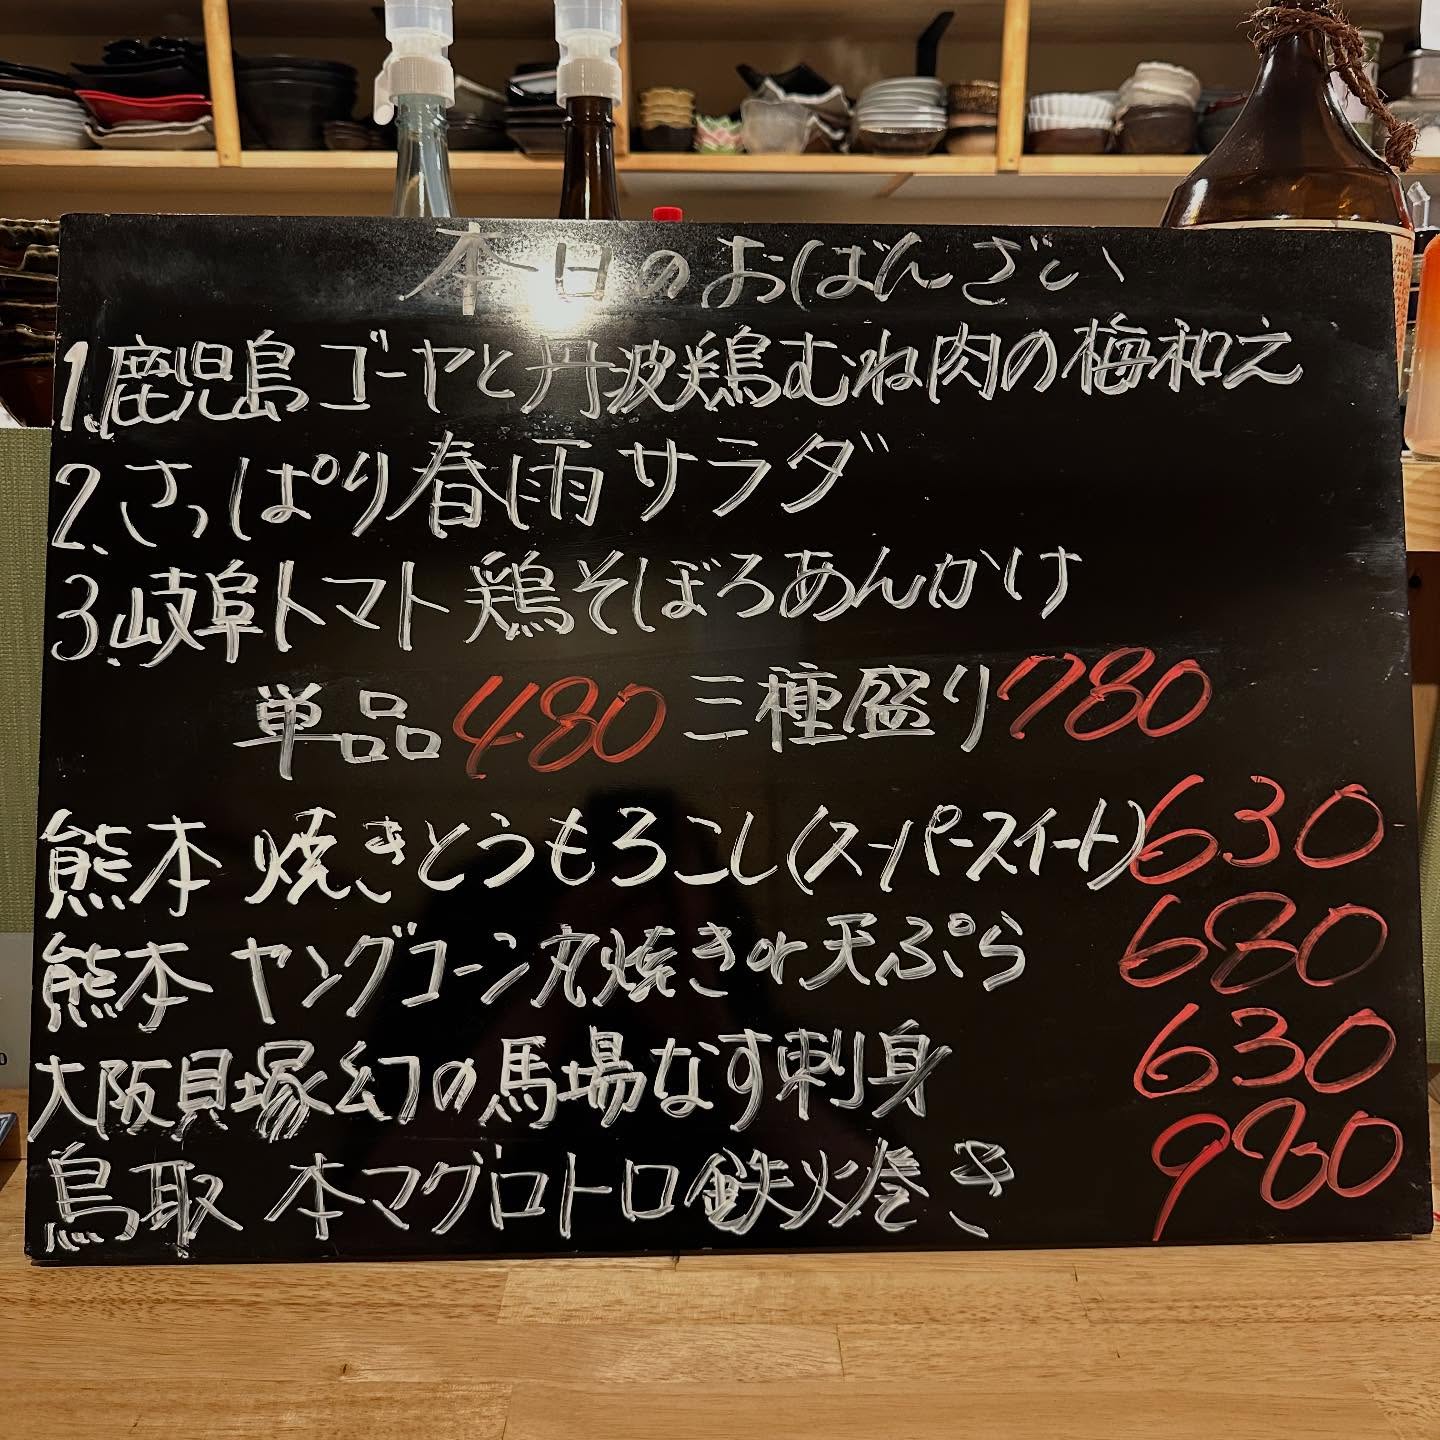 本日のおばんざい
1.鹿児島ゴーヤと丹波鶏むね肉の梅和え
2.さっぱり春雨サラダ
3.岐阜トマト鶏そぼろあんかけ
単品480 三種盛り780
熊本 焼きとうもろこし(スーパースイート)630
熊本 ヤングコーン丸焼きor天ぷら 680
大阪貝塚幻の馬場なす刺身 630
鳥取 本マグロトロ鉄火巻き 980